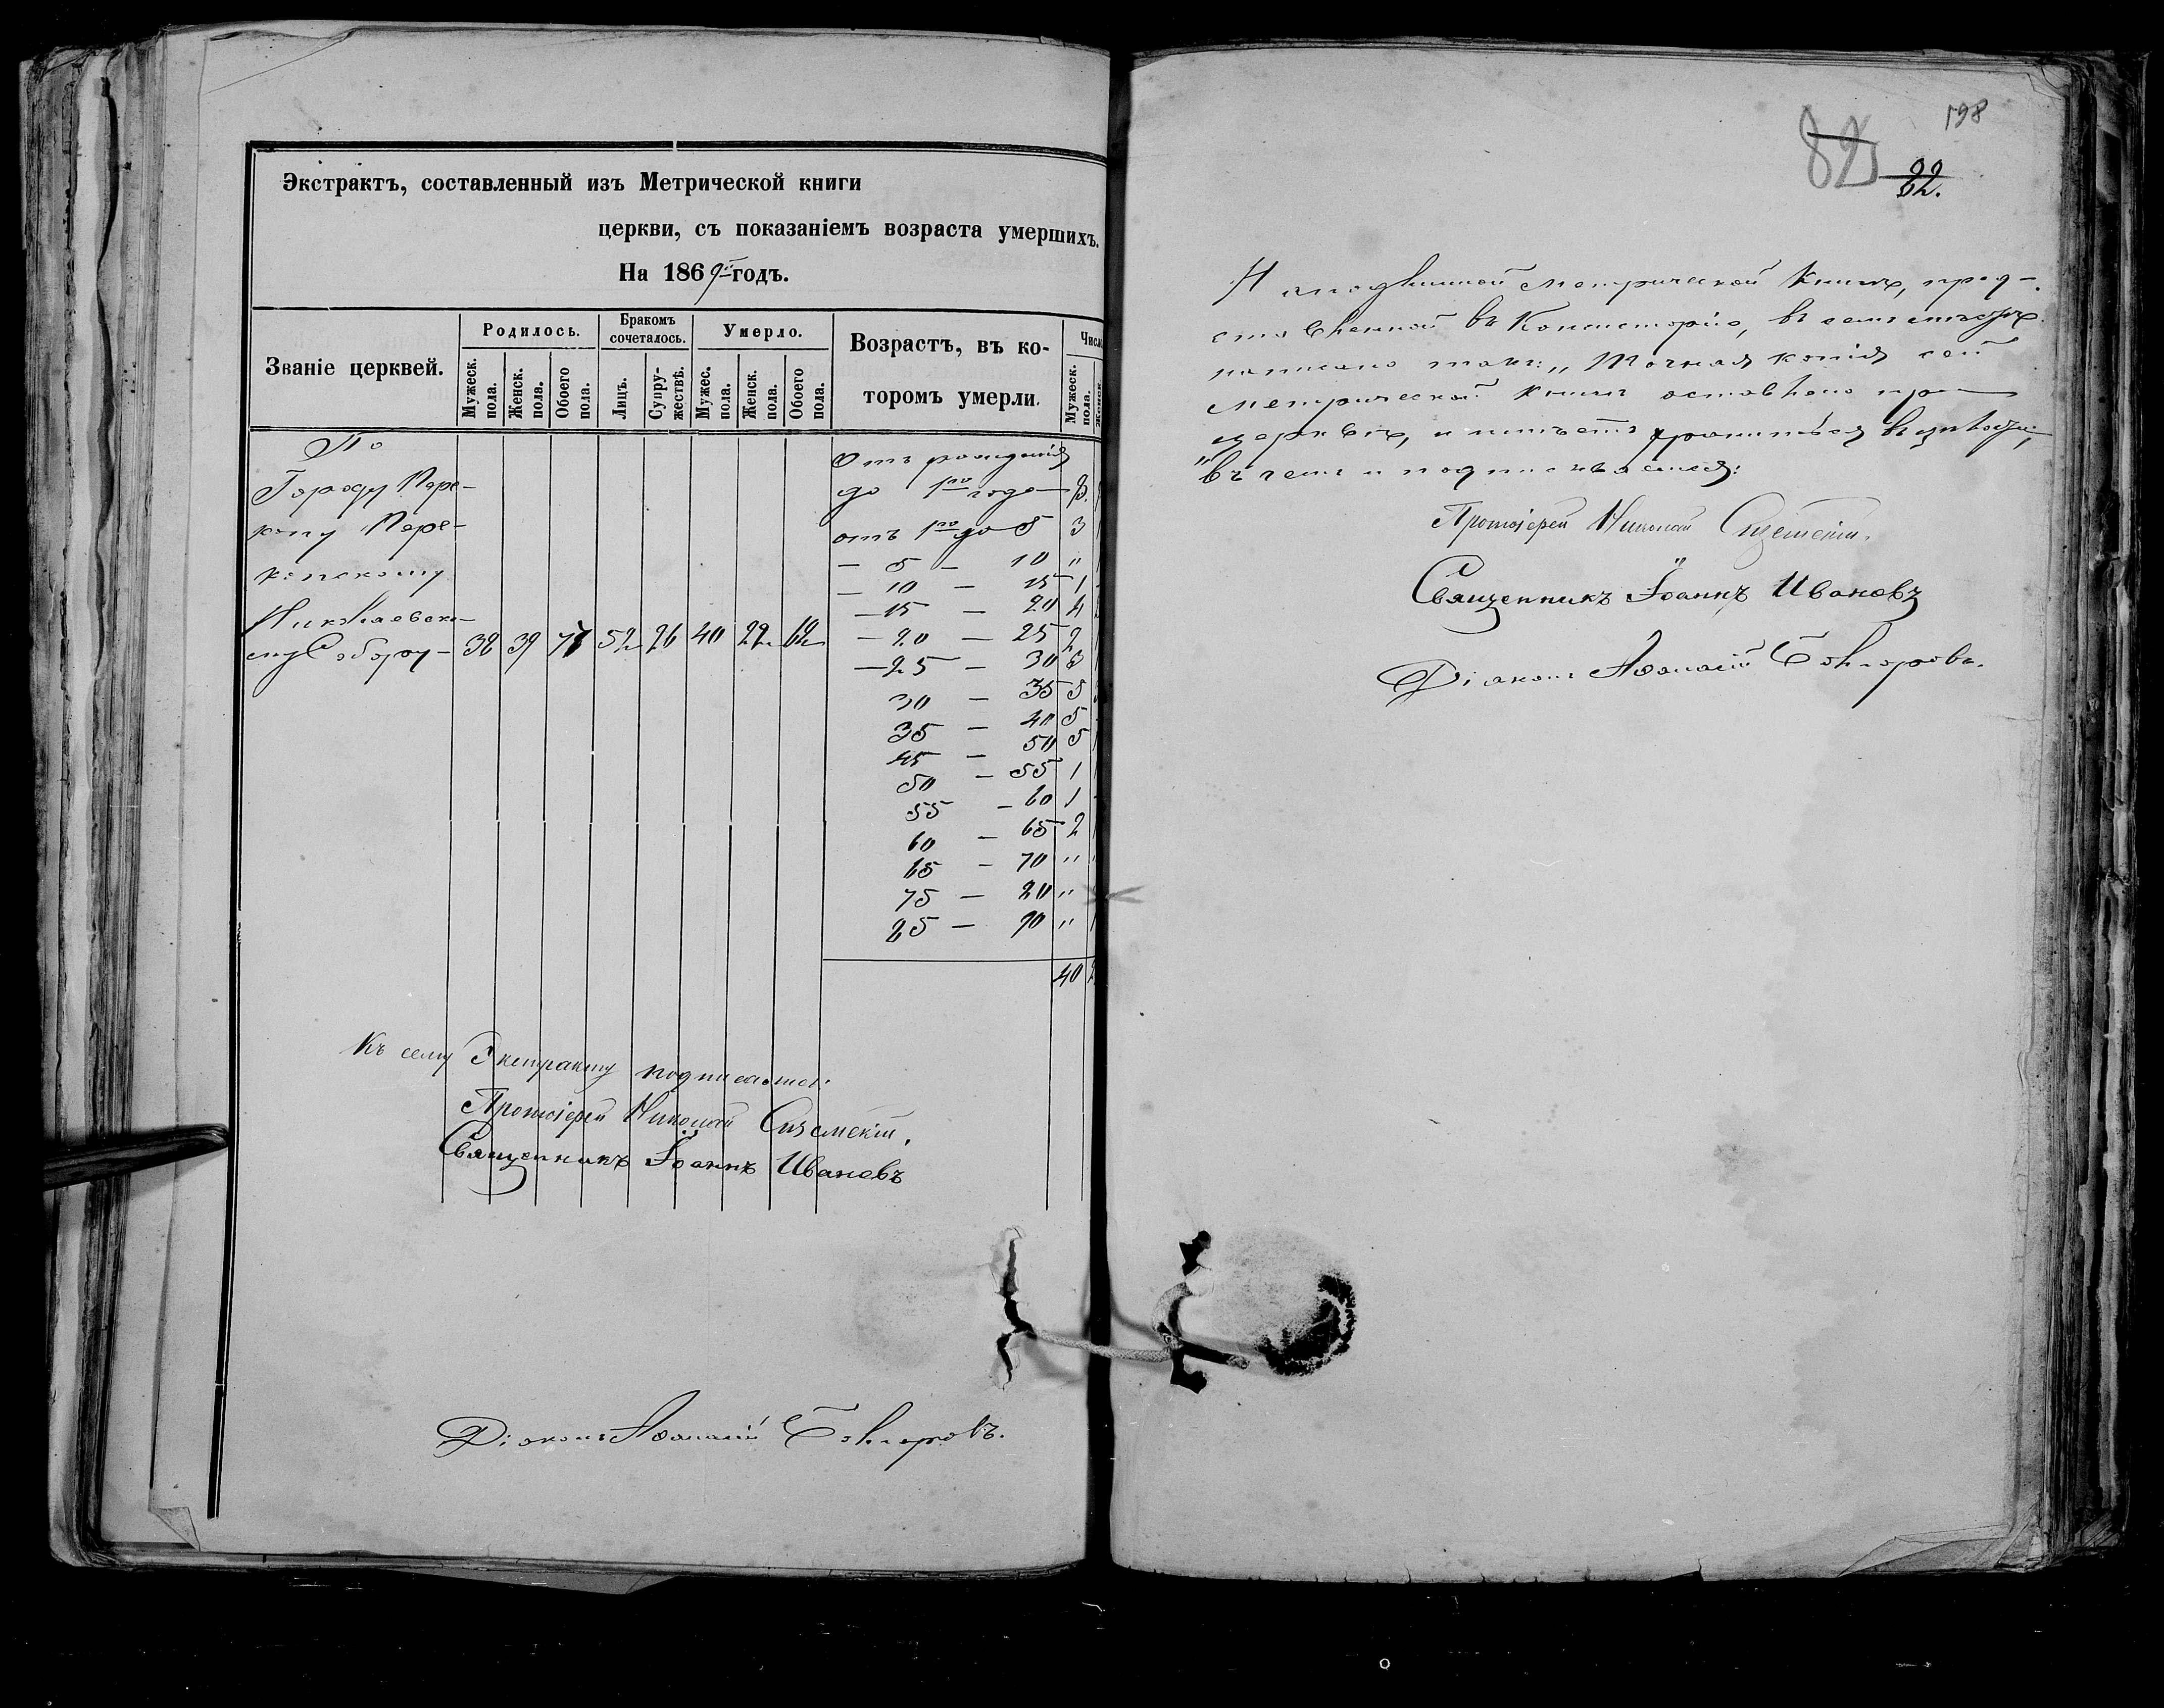 Экстрактъ, составленный изъ Метрической книги
церкви, съ показаніемъ возраста умершихъ.
На 1869й годъ.
Званіе церквей.
Родилось.
Мужеск. пола.
Женск. пола.
Обоего пола.
Бракомъ сочеталось.
Лицъ.
Супружествъ.
Умерло.
Мужес. пола.
Женск. пола.
Обоего пола.
Возрастъ, въ которомъ умерли.
Мужеск. пола.
По
Городу Пере-
копу Пере-
копскому
Николаевско-
му Собору — 38 39 77 52 26 40 22 62
Отъ рожденія
до 1го года — 8
отъ 1го до 5 3
— 5 — 10 "
— 10 — 15 1
— 15 — 20 4
— 20 — 25 2
— 25 — 30 3
30 — 35 5
35 — 40 5
45 — 50 5
50 — 55 1
55 — 60 1
60 — 65 2
65 — 70 "
75 — 80 "
85 — 90 "
40
Къ сему Экстракту подписались:
Протоіерей Николай
Священникъ Іоаннъ Ивановъ
Діаконъ Аѳанасій
198
82
22.
На подлинной Метрической Книгѣ, пред-
ставленной въ Консисторію,
написано такъ: „Точная копія сей
Метрической книги оставлена при
церкви, и
въ чемъ и подписываемся:
Протоіерей Николай
Священникъ Іоаннъ Ивановъ
Діаконъ Аѳанасій